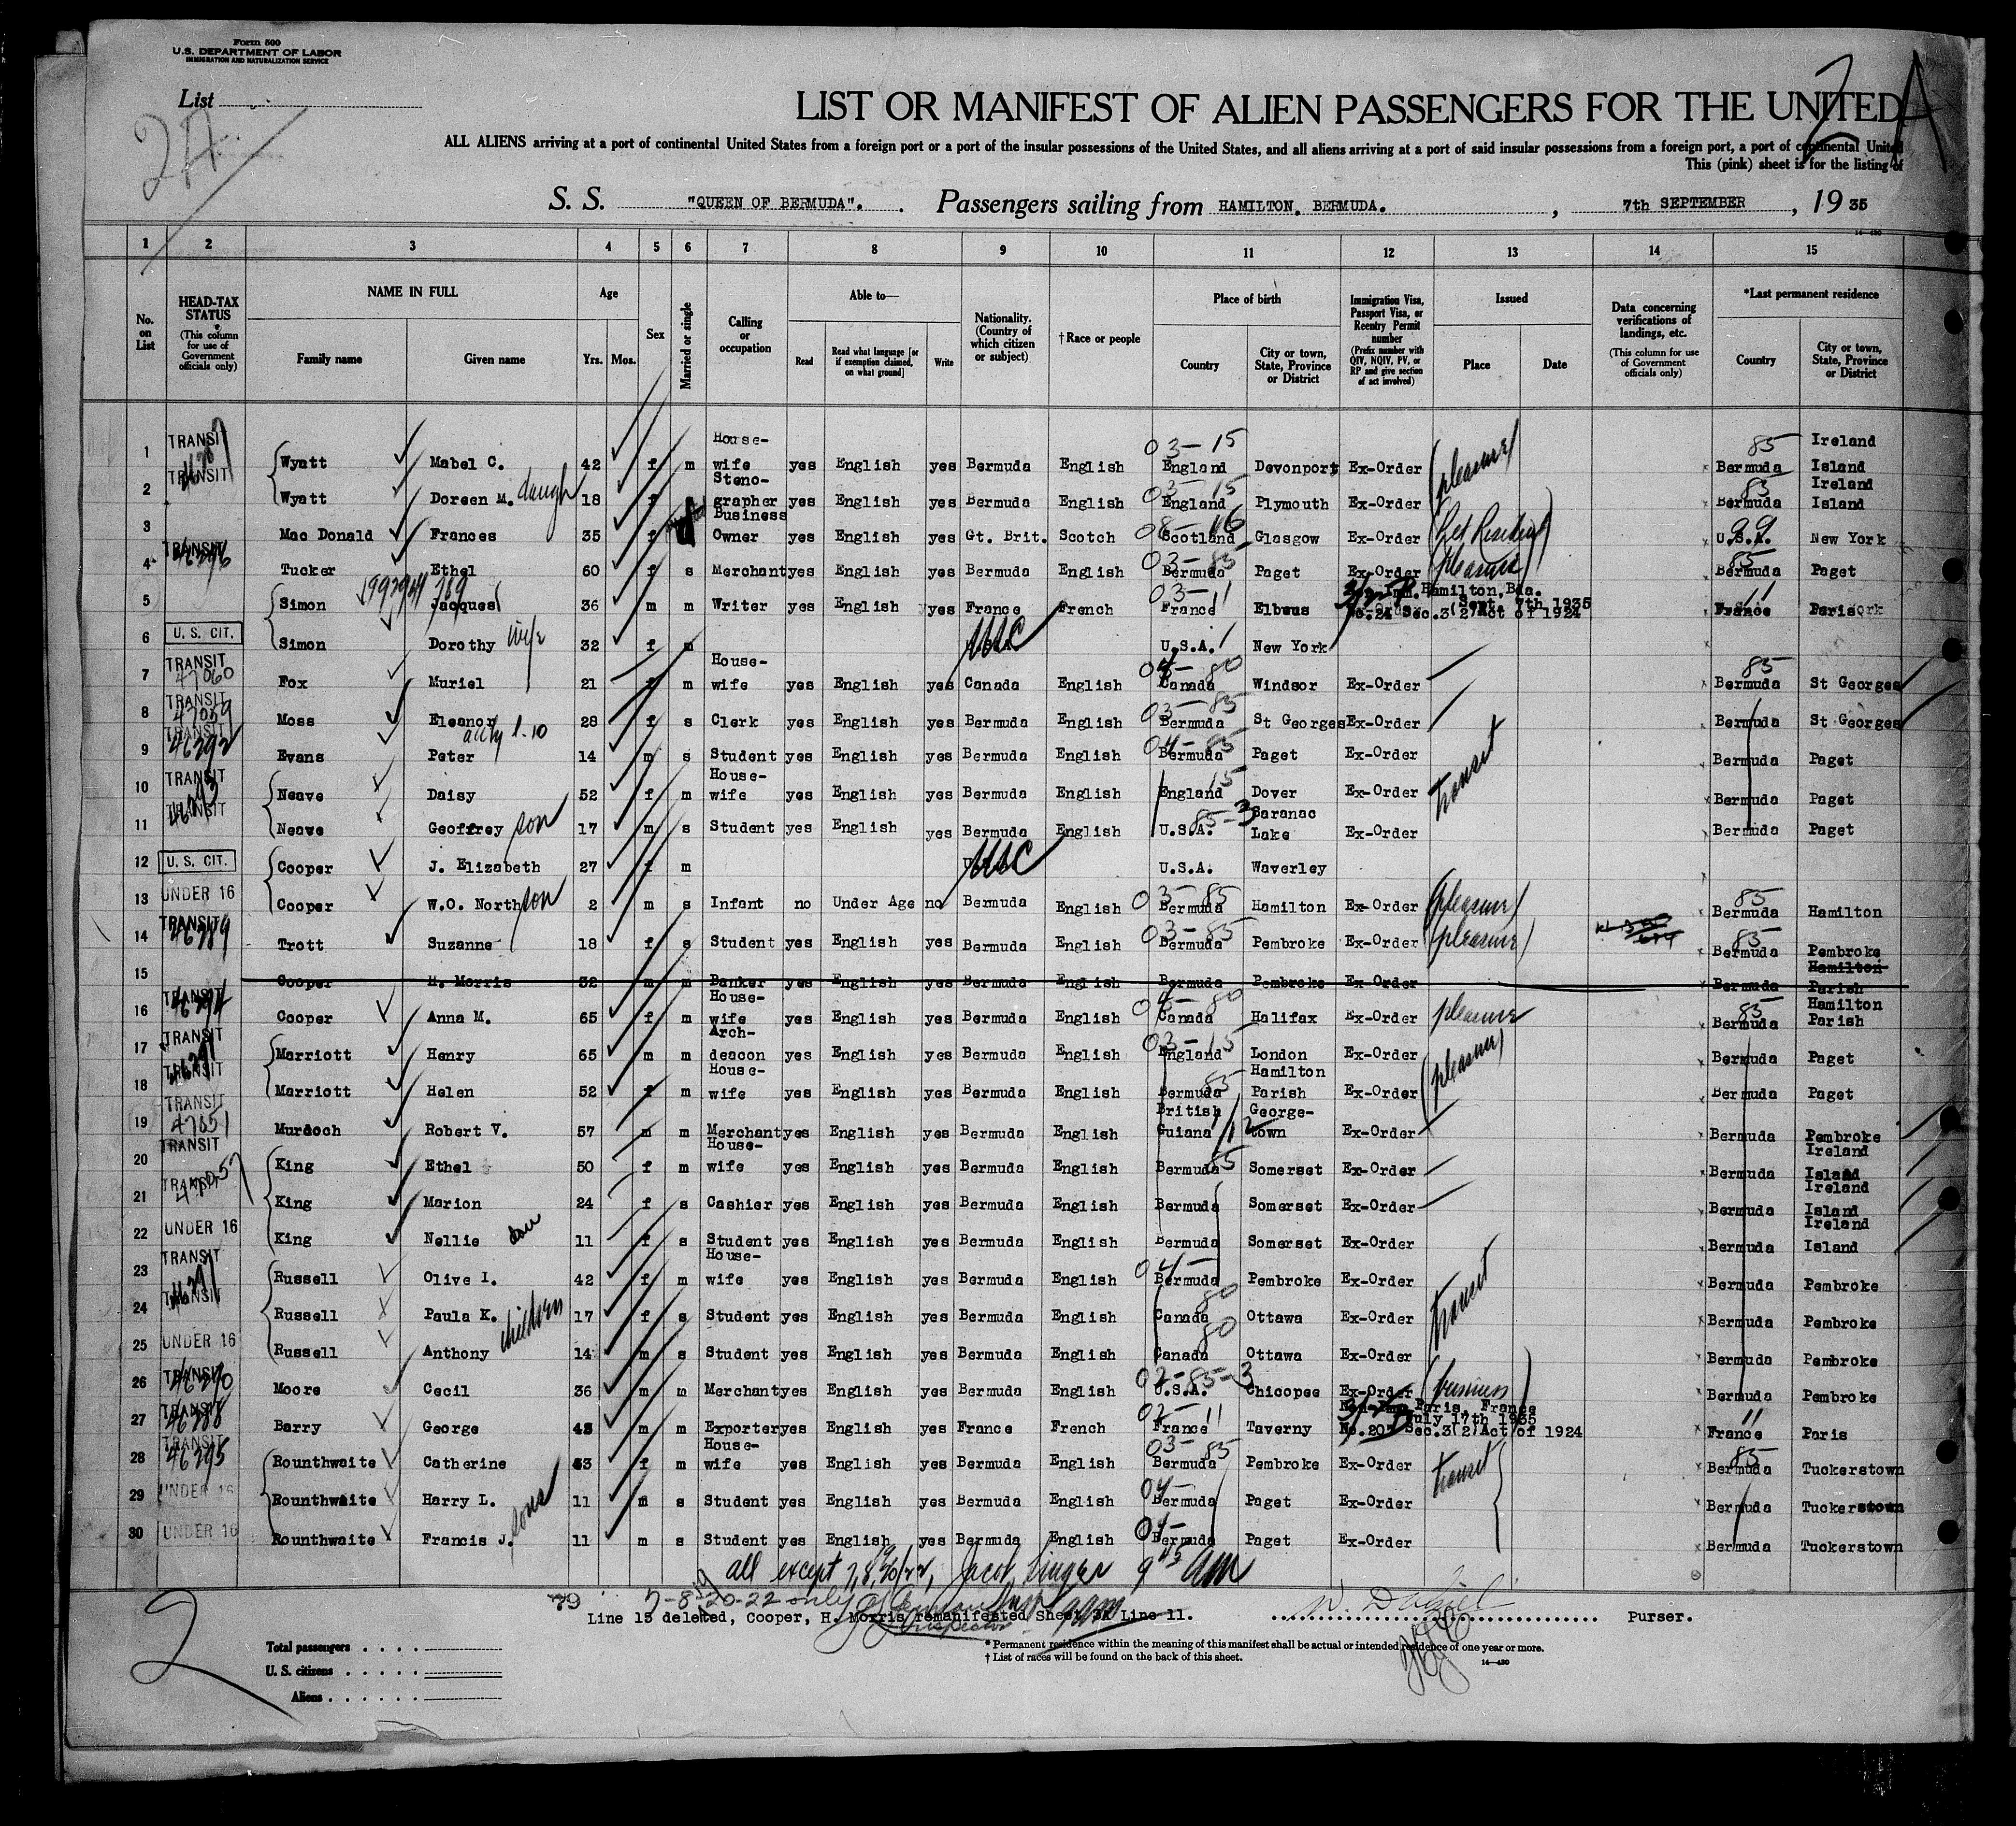 Form 500
U.S. DEPARTMENT OF LABOR
IMMIGRATION AND NATURALIZATION SERVICE
List
2A.
2 A
LIST OR MANIFEST OF ALIEN PASSENGERS FOR THE UNITED
ALL ALIENS arriving at a port of continental United States from a foreign port or a port of the insular possessions of the United States, and all aliens arriving at a port of said insular possessions from a foreign port, a port of continental United
This (pink) sheet is for the listing of
S. S. "QUEEN OF BERMUDA". Passengers sailing from HAMILTON, BERMUDA. , 7th SEPTEMBER , 19 35
14—430
1 2 3 4 5 6 7 8 9 10 11 12 13 14 15
No. on List
HEAD-TAX STATUS (This column for use of Government officials only)
NAME IN FULL Family name Given name
Age Yrs. Mos.
Sex
Married or single
Calling or occupation
Able to— Read Read what language [or if exemption claimed, on what ground] Write
Nationality. (Country of which citizen or subject)
†Race or people
Place of birth Country City or town, State, Province or District
Immigration Visa, Passport Visa, or Reentry Permit number (Prefix number with QIV, NQIV, PV, or RP and give section of act involved)
Issued Place Date
Data concerning verifications of landings, etc. (This column for use of Government officials only)
*Last permanent residence Country City or town, State, Province or District
1 TRANSIT Wyatt Mabel C. 42 f m House-wife yes English yes Bermuda English 03-15 England Devonport Ex-Order pleasure 85 Bermuda Ireland Island
2 TRANSIT Wyatt Doreen M. daugh 18 f Steno-grapher yes English yes Bermuda English 03-15 England Plymouth Ex-Order 85 Bermuda Ireland Island
3 Mac Donald Frances 35 f Business Owner yes English yes Gt. Brit. Scotch 08-16 Scotland Glasgow Ex-Order Ret Resident 99 U.S.A. New York
4 TRANSIT 46296 Tucker Ethel 60 f s Merchant yes English yes Bermuda English 03-85 Bermuda Paget Ex-Order pleasure 85 Bermuda Paget
5 Simon Jacques 36 m m Writer yes English yes France French 03-11 France Elbeus Hamilton, Bda. Sept. 7th 1935 No.24 Sec.3(2)Act of 1924 11 France Paris
6 U. S. CIT. Simon Dorothy wife 32 f m USC U.S.A. New York
7 TRANSIT 47060 Fox Muriel 21 f m House-wife yes English yes Canada English 04-80 Canada Windsor Ex-Order 85 Bermuda St Georges
8 TRANSIT 47059 Moss Eleanor 28 f s Clerk yes English yes Bermuda English 03-85 Bermuda St Georges Ex-Order Bermuda St Georges
9 TRANSIT 46292 Evans Peter 14 m s Student yes English yes Bermuda English 04-85 Bermuda Paget Ex-Order transit Bermuda Paget
10 TRANSIT 46293 Neave Daisy 52 f m House-wife yes English yes Bermuda English 15 England Dover Ex-Order Bermuda Paget
11 TRANSIT Neave Geoffrey son 17 m s Student yes English yes Bermuda English 85-3 U.S.A. Saranac Lake Ex-Order Bermuda Paget
12 U. S. CIT. Cooper J. Elizabeth 27 f m USC U.S.A. Waverley
13 UNDER 16 Cooper W.O. North son 2 m s Infant no Under Age no Bermuda English 03-85 Bermuda Hamilton Ex-Order pleasure 85 Bermuda Hamilton
14 TRANSIT 46289 Trott Suzanne 18 f s Student yes English yes Bermuda English 03-85 Bermuda Pembroke Ex-Order pleasure 85 Bermuda Pembroke
15 Cooper H. Morris 32 m m Banker yes English yes Bermuda English Bermuda Pembroke Ex-Order Bermuda Hamilton Parish
16 TRANSIT 46294 Cooper Anna M. 65 f m House-wife yes English yes Bermuda English 04-80 Canada Halifax Ex-Order pleasure 85 Bermuda Hamilton Parish
17 TRANSIT Marriott Henry 65 m m Arch-deacon yes English yes Bermuda English 03-15 England London Ex-Order pleasure Bermuda Paget
18 TRANSIT Marriott Helen 52 f m House-wife yes English yes Bermuda English 85 Bermuda Hamilton Parish Ex-Order Bermuda Paget
19 TRANSIT 47051 Murdoch Robert V. 57 m m Merchant yes English yes Bermuda English British Guiana 112 George-town Ex-Order Bermuda Pembroke
20 TRANSIT King Ethel 50 f m House-wife yes English yes Bermuda English Bermuda 85 Somerset Ex-Order Bermuda Ireland Island
21 TRANSIT 47057 King Marion 24 f s Cashier yes English yes Bermuda English Bermuda Somerset Ex-Order Bermuda Ireland Island
22 UNDER 16 King Nellie dau 11 f s Student yes English yes Bermuda English Bermuda Somerset Ex-Order Bermuda Ireland Island
23 TRANSIT 46291 Russell Olive I. 42 f m House-wife yes English yes Bermuda English 04- Bermuda Pembroke Ex-Order transit Bermuda Pembroke
24 TRANSIT Russell Paula K. children 17 f s Student yes English yes Bermuda English 80 Canada Ottawa Ex-Order Bermuda Pembroke
25 UNDER 16 Russell Anthony 14 m s Student yes English yes Bermuda English 80 Canada Ottawa Ex-Order Bermuda Pembroke
26 TRANSIT 46290 Moore Cecil 36 m m Merchant yes English yes Bermuda English 02-85-3 U.S.A. Chicopee Ex-Order business Bermuda Pembroke
27 TRANSIT 46288 Barry George 43 m m Exporter yes English yes France French 02-11 France Taverny Paris, France July 17th 1935 No.207 Sec.3(2)Act of 1924 11 France Paris
28 TRANSIT 46295 Rounthwaite Catherine 53 f m House-wife yes English yes Bermuda English 03-85 Bermuda Pembroke Ex-Order transit 85 Bermuda Tuckerstown
29 UNDER 16 Rounthwaite Harry L. sons 11 m s Student yes English yes Bermuda English 04- Bermuda Paget Ex-Order Bermuda Tuckerstown
30 UNDER 16 Rounthwaite Francis J. 11 m s Student yes English yes Bermuda English 04- Bermuda Paget Ex-Order Bermuda Tuckerstown
all except 7, 8, 19, 20/22, Jacob Singer 9 45 AM
79
7-8-19-20-22 only
Line 15 deleted, Cooper, H. Morris remanifested Sheet 3A Line 11.
Purser.
2
Total passengers
U. S. citizens
Aliens
* Permanent residence within the meaning of this manifest shall be actual or intended residence of one year or more.
† List of races will be found on the back of this sheet.
14—430